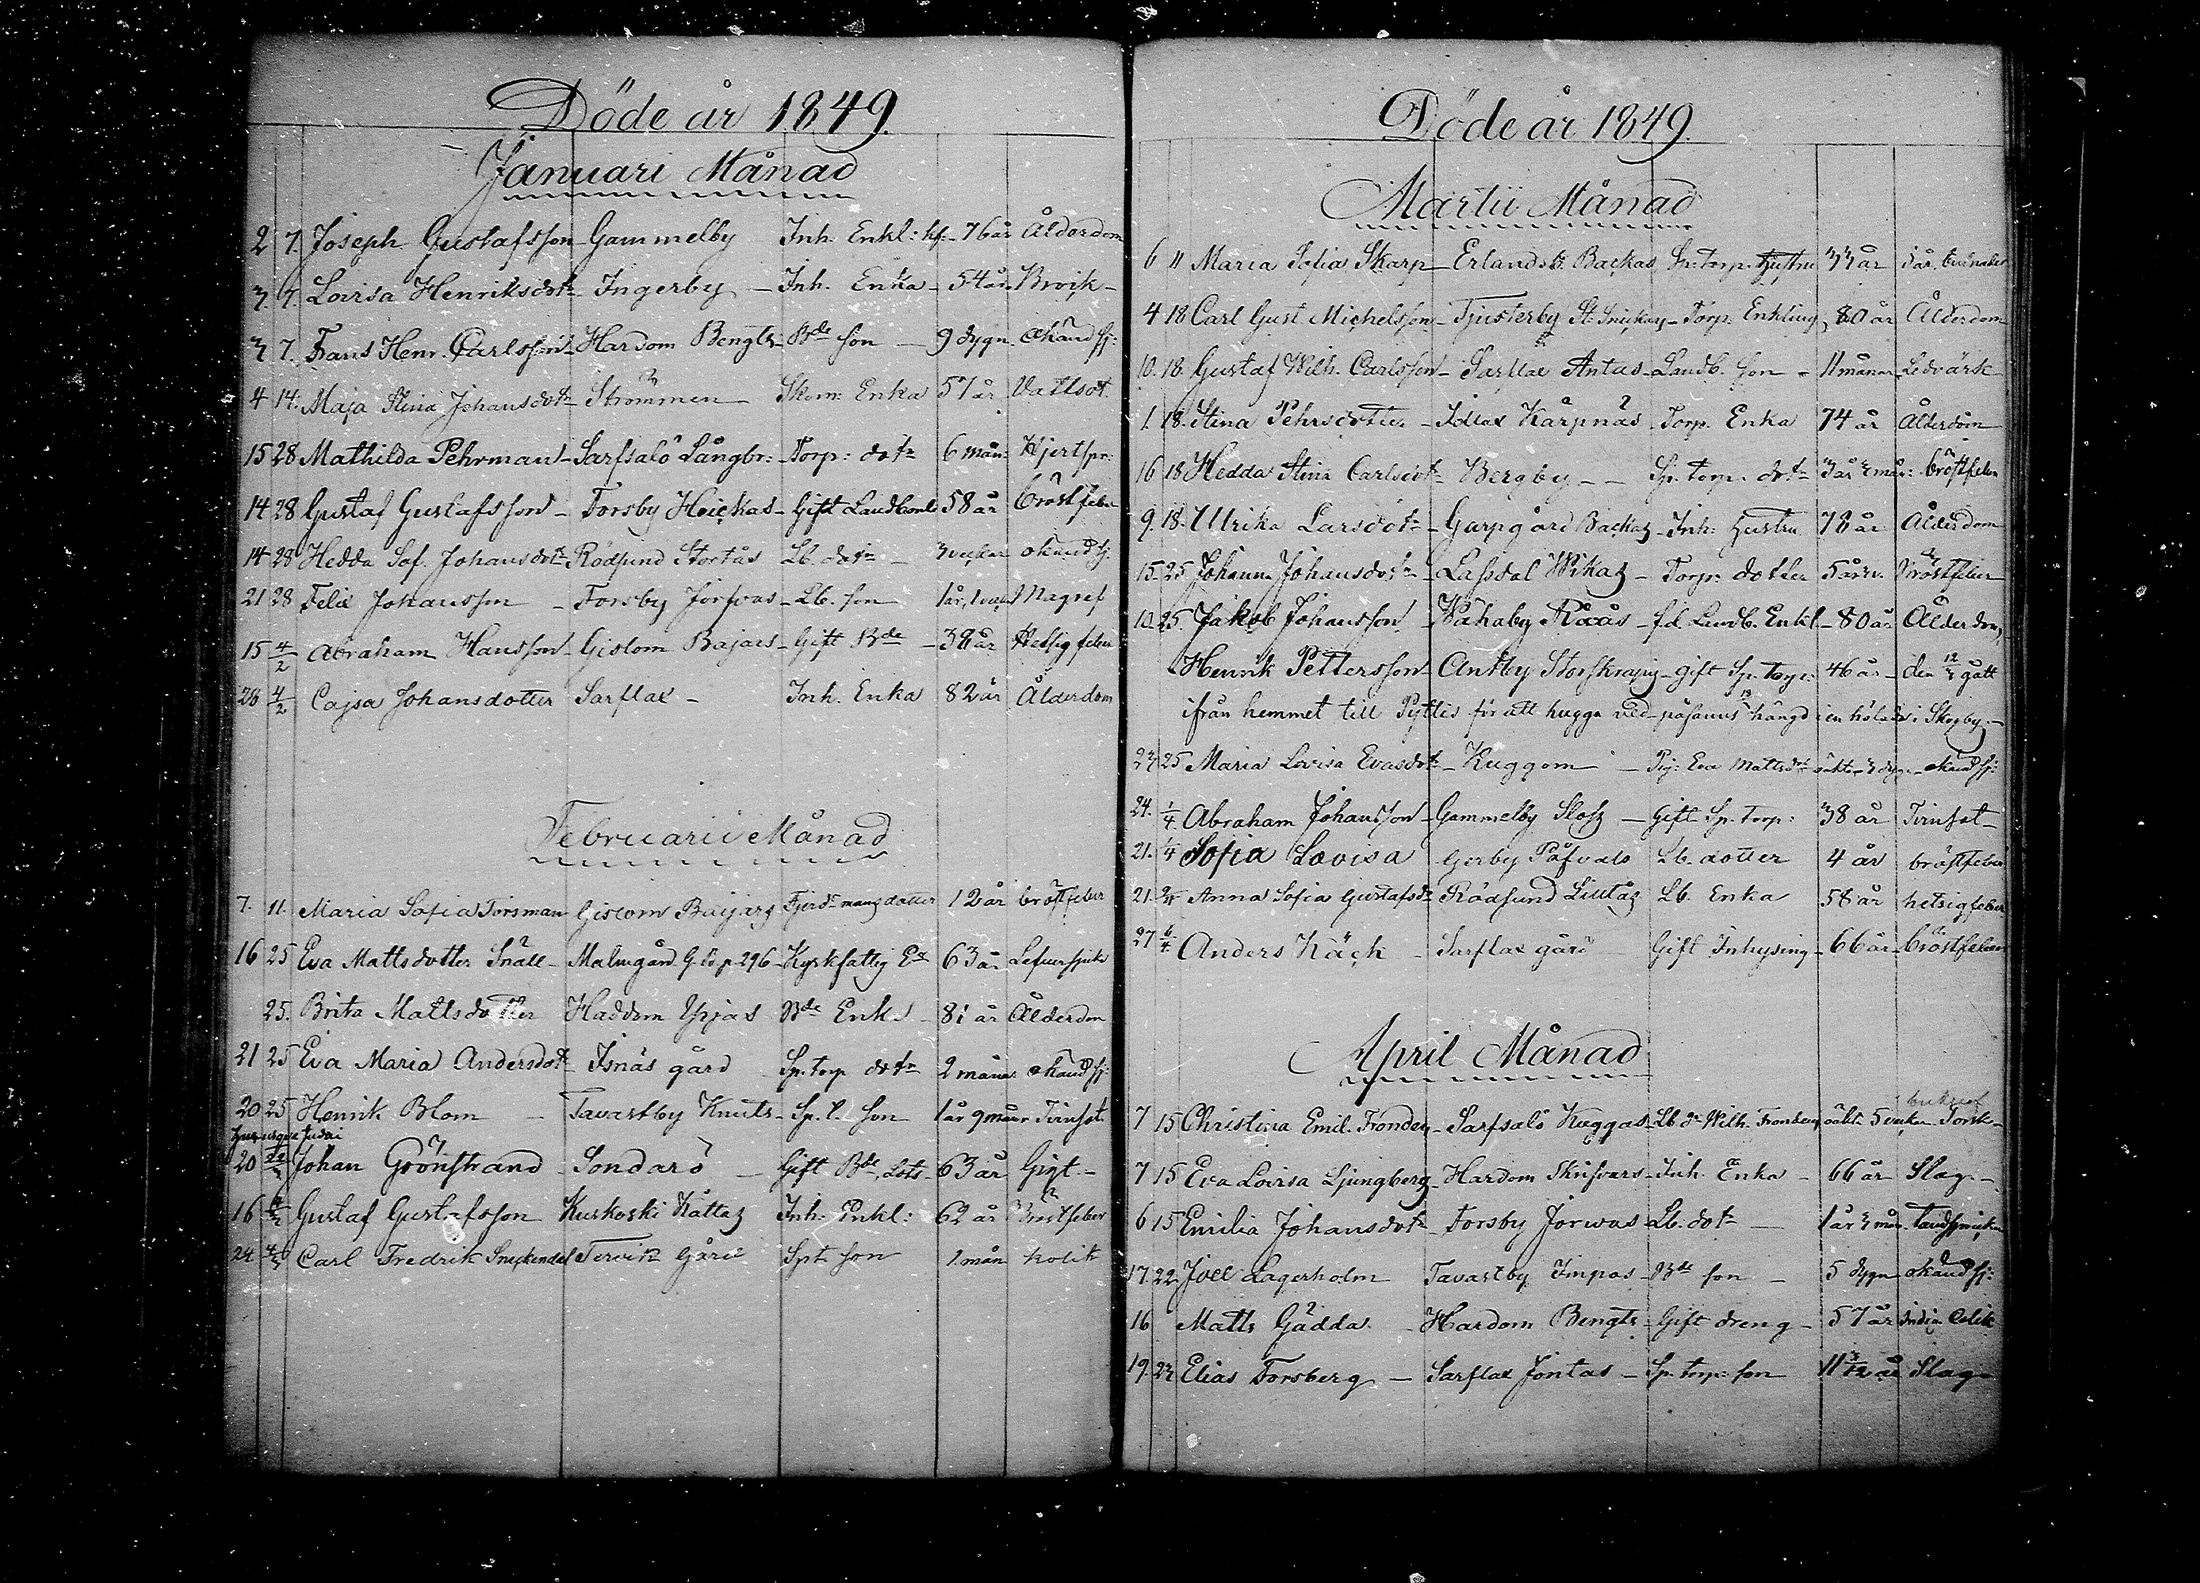 Döde år 1849.
Januari Månad
2 7. Joseph Gustafsson Gammelby Inh. Enkl: 76 år Ålderdom
3. 7. Lovisa Henriksdotr Ingerby Inh. Enka 54 år
3 7. Frans Henr. Carlsson Hardom Bengts Bde son 9 dygn okänd sj:
4 14. Maja Stina Johansdotr Strömmen Skom: Enka 57 år Vattsot.
15 28 Mathilda Pehrman Sarfsalö Långbr: Torp: dotr 6 mån: Hjertspr:
14 28 Gustaf Gustafsson Forsby Heickas Gift Landbonde 58 år bröstfeber
14 28 Hedda Sof. Johansdotr Rödsund Stortås Lb. dotr 3 veckor okänd sj.
21 28 Felix Johansson Forsby Jorfvas Lb. son 1 år, Magref
15 4/2 Abraham Hansson Gislom Bajars Gift Bde 38 år Hetsig feber
28 4/2 Cajsa Johansdotter Sarflax Inh. Enka 82 år Ålderdom
Februarii Månad
7. 11. Maria Sofia Forsman Gislom Baijars Fjerdr mans dotter 12 år bröstfeber
16 25 Eva Mattsdotter Snäll Malmgård G. B. p. 296 Kyrkfattig Ea 63 år Lefversjuk
25. Brita Mattsdotter Haddom Ypjas Bde Enka 81 år Ålderdom
21 25 Eva Maria Andersdotr Isnäs gård Sp. torp dotr 2 månar okänd sj:
20 25 Henrik Blom Tavastby Knuts Sp. l. son 1 år 9 månr Tvinsot.
20 Johan Grönstrand Sondarö Gift Bde, Lots 63 år Gigt
16 Gustaf Gustafsson Kuskoski Kåttas Inh. Enkl: 62 år Bröstfeber
24 4/3 Carl Fredrik Snickendal Tervik Gård Spt son 1 mån kolik
Döde år 1849.
Martii Månad
6 11 Maria Sofia Skarp Erlands Backas Sp: torp. Hustru 33 år
4 18 Carl Gust. Michelsson Tjusterby Torp. Enkling 80 år Ålderdom
10. 18. Gustaf Wilh. Carlsson Sarflax Antas Landb. son 11 månar Ledvärk
1. 18. Stina Pehrsdotter Idlax Kärpnäs Torp. Enka 74 år Ålderdom
16 18 Hedda Stina Carlsdotr Bergby Sp. torp. dotr 3 år 3 mån: bröstfeber
9. 18. Ulrika Larsdotr Garpgård Backas Inh: Hustru 78 år Ålderdom
15. 25 Johanna Johansdotr Lassdal Wikas Torp: dotter 5 år Bröstfeber
10. 25. Jakob Johansson Wåhaby Råås f.d. Landb. Enkl. 80 år Ålderdom,
Henrik Pettersson Antby Storskräyrij gift Sp. torp: 46 år den 12/3 gått
ifrån hemmet till Pyttis för att hugga ved hängd i en hölada i Skogby.
23 25 Maria Lovisa Evasdotr Kuggom Pig: Eva Mattsdotr oäkta 3 dygn okänd sj:
24. 1/4 Abraham Johansson Gammelby Gift Sp. torp: 38 år Tvinsot
21. 1/4 Sofia Lovisa Gerby Påfvals Lb. dotter 4 år bröstfeber
21. Anna Sofia Gustafsdr Rödsund Liltås Lb. Enka 58 år hetsigfeber
27 6/4 Anders Käck Sarflax gård Gift Inhysing 66 år bröstfeber
April Månad
7 15 Christina Emil. Fronden Sarfsalö Kuggas Lb. dr Wilh. Fronden oäkta 5 veckor Torsk
7 15 Eva Lovisa Ljungberg Hardom Skifvars Inh. Enka 66 år Slag.
6 15 Emilia Johansdotr Forsby Jorwas Lb. dotr 1 år 3 mån.
17. 22. Joel Lagerholm Tavastby Impas Bde son 5 dygn okänd sj:
16 Matts Gädda Hardom Bengts Gift dreng 57 år Colik
19. 23 Elias Forsberg Sarflax Jontas Sp. torp: son 11 3/12 år Slag